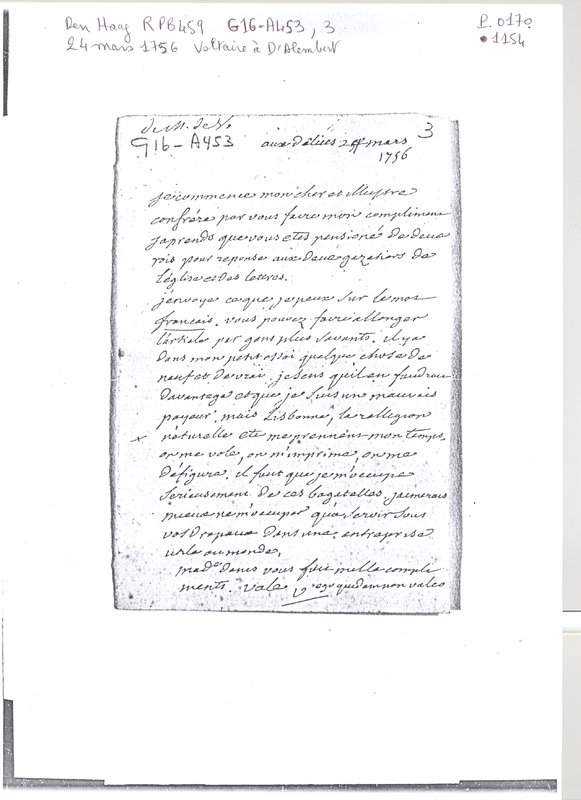 Den Haag RPB459 G16-A453, 3
P. 0170
24 mars 1756 Voltaire à D'Alembert
•1154
de M. de V.
3
G16-A453
aux délices 24 mars
1756
je commence mon cher et illustre
confrére par vous faire mon compliment
japrends que vous etes pensioné de deux
rois pour reponse aux deux gazetiers de
léglise et des lettres.
jénvoye ce que je peux sur le mot
francais. vous pouvez faire allonger
lárticle par gens plus savants. il ya
dans mon petit essai quelque chose de
neuf et de vrai. je sens quil en faudrait
davantage et que je suis un mauvais
payeur. mais Lisbonne, la relligion
naturelle etc me prennent mon temps.
on me vole, on m'imprime, on me
défigure. il faut que je m'occupe
serieusement de ces bagatelles. jaimerais
mieux ne m'occuper qu'a servir sous
vos drapaux dans une entreprise
utile au monde.
made denis vous fait mille compli
ments. vale V ego quidem non valeo